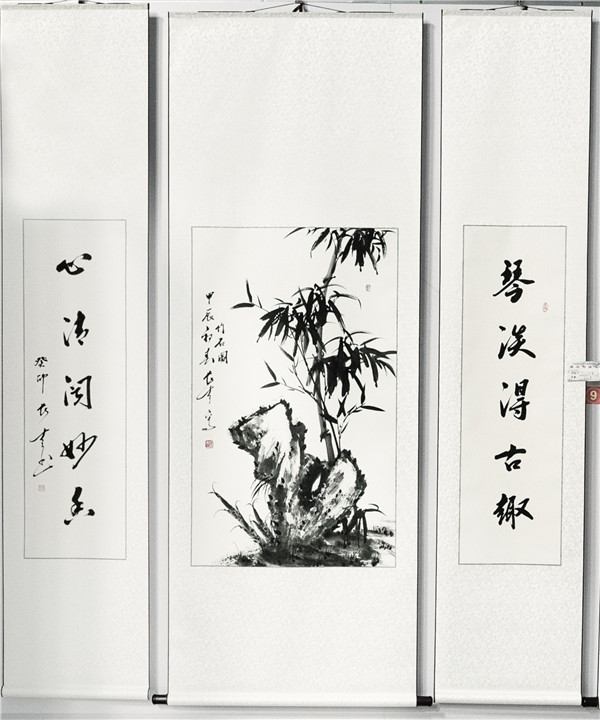 琴淡得古趣
竹石图
甲辰初夏
心清闻妙香
癸卯
9